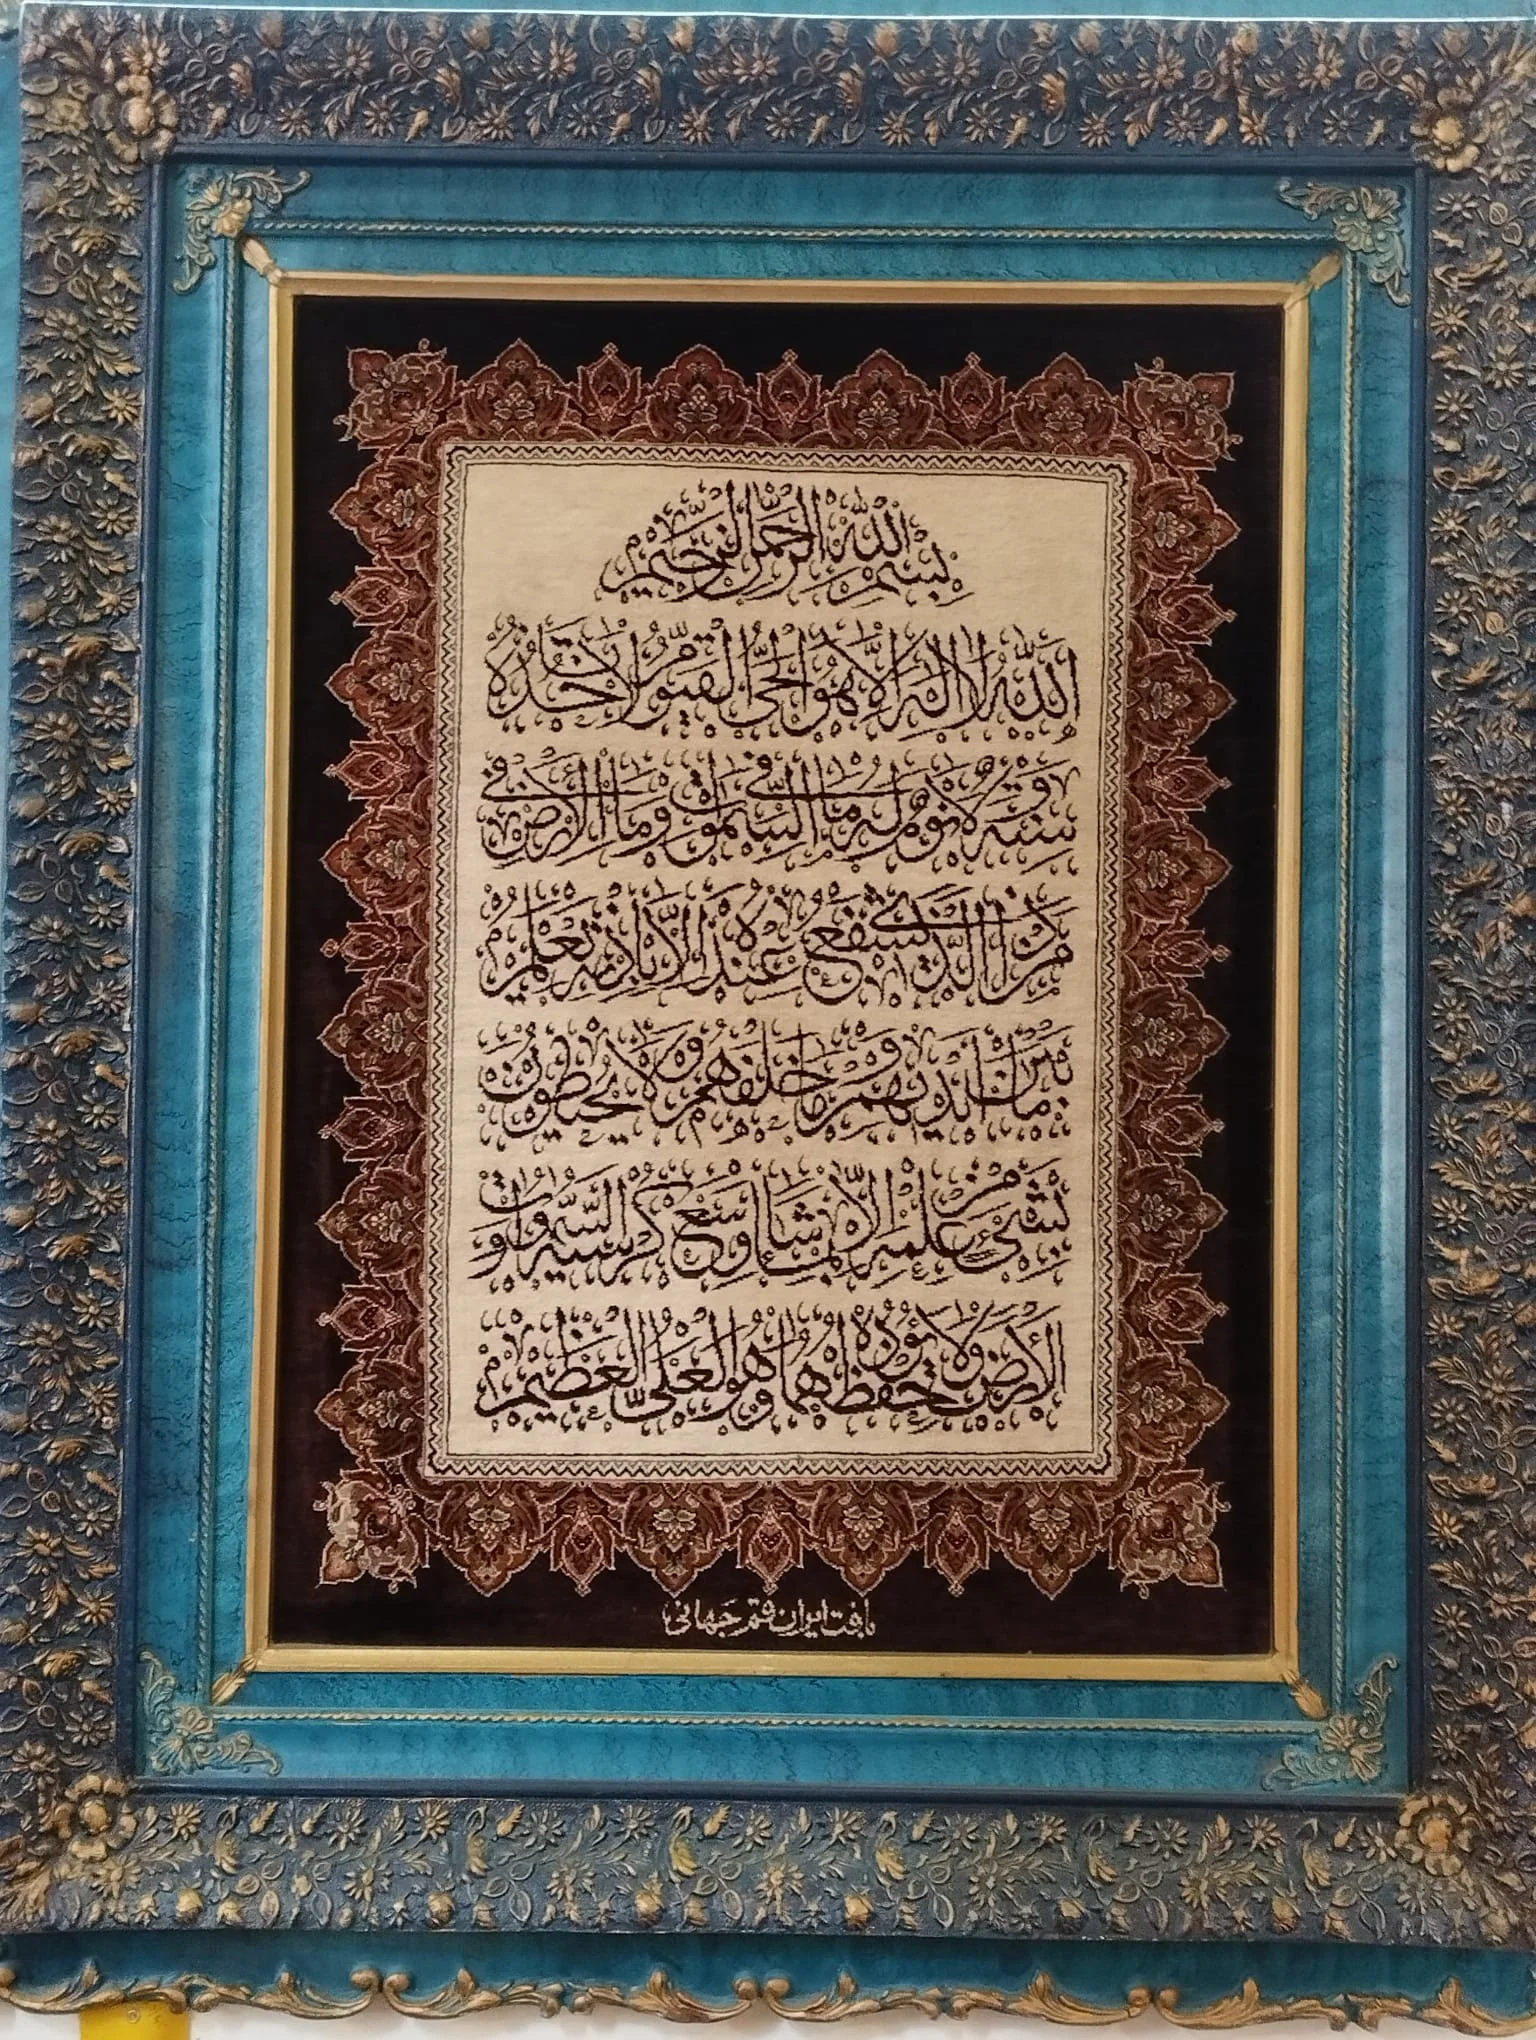 بِسْمِ اللهِ الرَّحْمٰنِ الرَّحِيمِ
اَللهُ لَا اِلٰهَ اِلَّا هُوَ الْحَيُّ الْقَيُّومُ لَا تَأْخُذُهُ
سِنَةٌ وَلَا نَوْمٌ لَهُ مَا فِي السَّمٰوَاتِ وَمَا فِي الْاَرْضِ
مَنْ ذَا الَّذِي يَشْفَعُ عِنْدَهُ اِلَّا بِاِذْنِهِ يَعْلَمُ
مَا بَيْنَ اَيْدِيهِمْ وَمَا خَلْفَهُمْ وَلَا يُحِيطُونَ
بِشَيْءٍ مِنْ عِلْمِهِ اِلَّا بِمَا شَاءَ وَسِعَ كُرْسِيُّهُ السَّمٰوَاتِ وَ
الْاَرْضَ وَلَا يَؤُدُهُ حِفْظُهُمَا وَهُوَ الْعَلِيُّ الْعَظِيمُ
بافت ایران قم جهانی